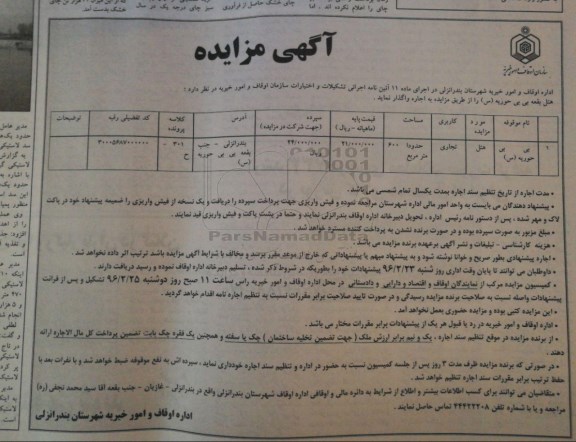 آگهی مزایده
اداره اوقاف و امور خیریه شهرستان بندرانزلی در اجرای ماده ۱۱ آئین نامه اجرائی تشکیلات و اختیارات سازمان اوقاف و امور خیریه در نظر دارد :
هتل بقعه بی بی حوریه (س) را از طریق مزایده به اجاره واگذار نماید .
ردیف نام موقوفه مورد مزایده کاربری مساحت قیمت پایه (ماهیانه - ریال) سپرده (جهت شرکت در مزایده) آدرس کلاسه پرونده کد تفصیلی رقبه توضیحات
۱ بی بی حوریه (س) هتل تجاری حدودا ۶۰۰ متر مربع بندرانزلی - جنب بقعه بی بی حوریه (س)
• مدت اجاره از تاریخ تنظیم سند اجاره بمدت یکسال تمام شمسی می باشد .
• پیشنهاد دهندگان می بایست به واحد امور مالی اداره شهرستان مراجعه نموده و فیش واریزی جهت پرداخت سپرده را دریافت و یک نسخه از فیش واریزی را ضمیمه پیشنهاد خود در پاکت
لاک و مهر شده , پس از دستور نامه رئیس اداره , تحویل دبیرخانه اداره اوقاف بندرانزلی نمایند و حتما در پشت پاکت و فیش واریزی قید نمایند.
• مبلغ مزبور به صورت سپرده بوده و در صورت برنده نشدن به پرداخت کننده مسترد خواهد شد .
• هزینه کارشناسی - تبلیغات و نشر آگهی برعهده برنده مزایده می باشد
• اجاره پیشنهادی بطور صریح و خوانا نوشته شود و به پیشنهاد مبهم یا پیشنهاداتی که خارج از موعد مقرر برسد و مخالف با شرایط آگهی مزایده باشد ترتیب اثر داده نخواهد شد.
• داوطلبان می توانند تا پایان وقت اداری روز شنبه ۹۶/۲/۲۳ پیشنهادات خود را بطوریکه در شروط ذکر شده , تسلیم دبیرخانه اداره اوقاف نموده و رسید دریافت دارند .
• کمیسیون مزایده مرکب از نمایندگان اوقاف و اقتصاد و دارایی و دادستانی در محل اداره اوقاف و امور خیریه راس ساعت ۱۱ صبح روز دوشنبه ۹۶/۲/۲۵ تشکیل و پس از قرائت
پیشنهادات واصله نسبت به صلاحیت برنده مزایده رسیدگی و در صورت تایید صلاحیت برابر مقررات نسبت به تنظیم اجاره نامه اقدام خواهد گردید.
• این مزایده کتبی بوده و مزایده حضوری بعمل نخواهد آمد .
• اداره اوقاف و امور خیریه در رد یا قبول هر یک از پیشنهادات برابر مقررات مختار می باشد .
• از برنده مزایده در موقع تنظیم سند اجاره , یک و نیم برابر ارزش ملک ( جهت تضمین تخلیه ساختمان ) چک یا سفته و همچنین یک فقره چک بابت تضمین پرداخت کل مال الاجاره ارائه
دهند .
• در صورتی که برنده مزایده ظرف مدت ۳ روز پس از جلسه کمیسیون نسبت به حضور در اداره و تنظیم سند اجاره خودداری نماید , سپرده اش به نفع موقوفه ضبط خواهد شد و با نفرات بعد با
حفظ ترتیب برابر مقررات سند اجاره تنظیم خواهد شد .
• متقاضیان می توانند برای کسب اطلاعات بیشتر و اطلاع از شرایط به دائره مالی و اوقافی اداره اوقاف شهرستان بندرانزلی واقع در بندرانزلی - غازیان - جنب بقعه آقا سید محمد نجفی (ره)
مراجعه و یا با شماره تلفن ۴۴۴۴۲۲۰۸ تماس حاصل نمایند .
اداره اوقاف و امور خیریه شهرستان بندرانزلی
ParsNamadData